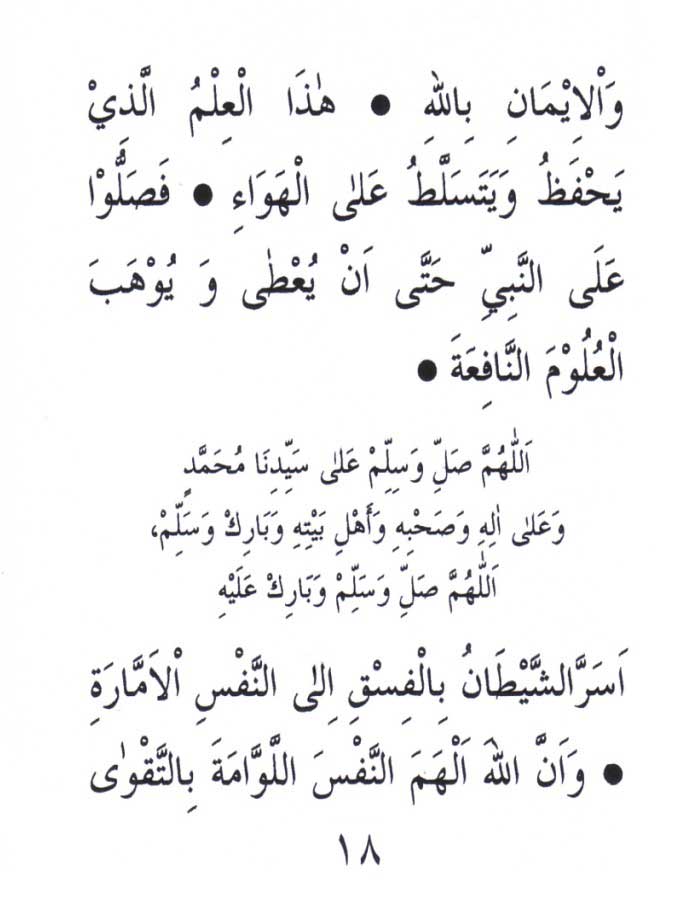 وَاْلاِيْمَانِ بِاللهِ ● هٰذَا الْعِلْمُ الَّذِيْ
يَحْفَظُ وَيَتَسَلَّطُ عَلٰى الْهَوَاءِ ● فَصَلُّوْا
عَلَى النَّبِيِّ حَتَّى اَنْ يُعْطٰى وَ يُوْهَبَ
الْعُلُوْمَ النَّافِعَةَ ●
اَللّٰهُمَّ صَلِّ وَسِلِّمْ عَلٰى سَيِّدِنَا مُحَمَّدٍ
وَعَلٰى اٰلِهِ وَصَحْبِهِ وَأَهْلِ بَيْتِهِ وَبَارِكْ وَسَلِّمْ،
اَللّٰهُمَّ صَلِّ وَسَلِّمْ وَبَارِكْ عَلَيْهِ
اَسَرَّالشَّيْطَانُ بِالْفِسْقِ اِلٰى النَّفْسِ اْلاَمَّارَةِ
● وَاَنَّ اللهَ اَلْهَمَ النَّفْسَ اللَّوَّامَةَ بِالتَّقْوٰى
١٨